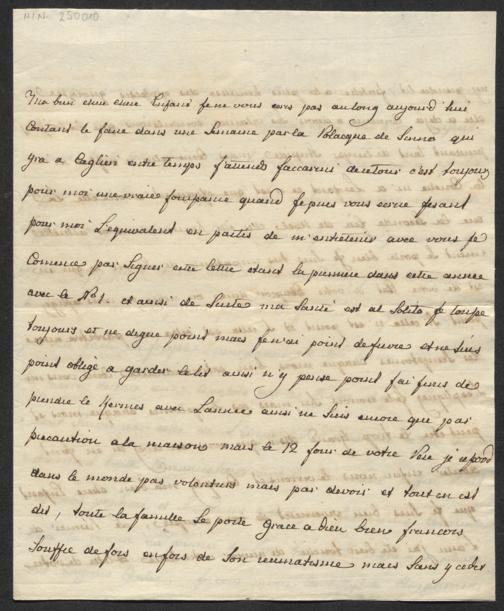 H.N. 250010
Mon bien cher cher Enfant je ne vous ecris pas au long aujourd'hui
Contant le faire dans une Semaine par la Polacque de Sunno qui
yra a Caglieri entre temps j'attends faccareni de retour c'est toujours
pour moi une vraie jouyance quand je puis vous ecrire fesant
pour moi L'equivalent en partie de m'entretenir avec vous je
Comence par Signer cette lettre etant la premiere dans cette annee
avec le No 1. et ainsi de Suite ma Santé est al Solito je toupe
toujours et ne digue point mais je n'ai point de fievre et ne Suis
point obligé a garder le lit ainsi n'y pense point j'ai finis de
prendre le Kermes avec L'annee ainsi ne Suis encore que par
precaution a la maison mais le 12 jour de votre je
dans le monde pas volontiers mais par devoir et tout en est
dit, toute la famille Se porte Grace a Dieu bien francois
Souffre de fois en fois de Son reumatisme mais Sans y ceder